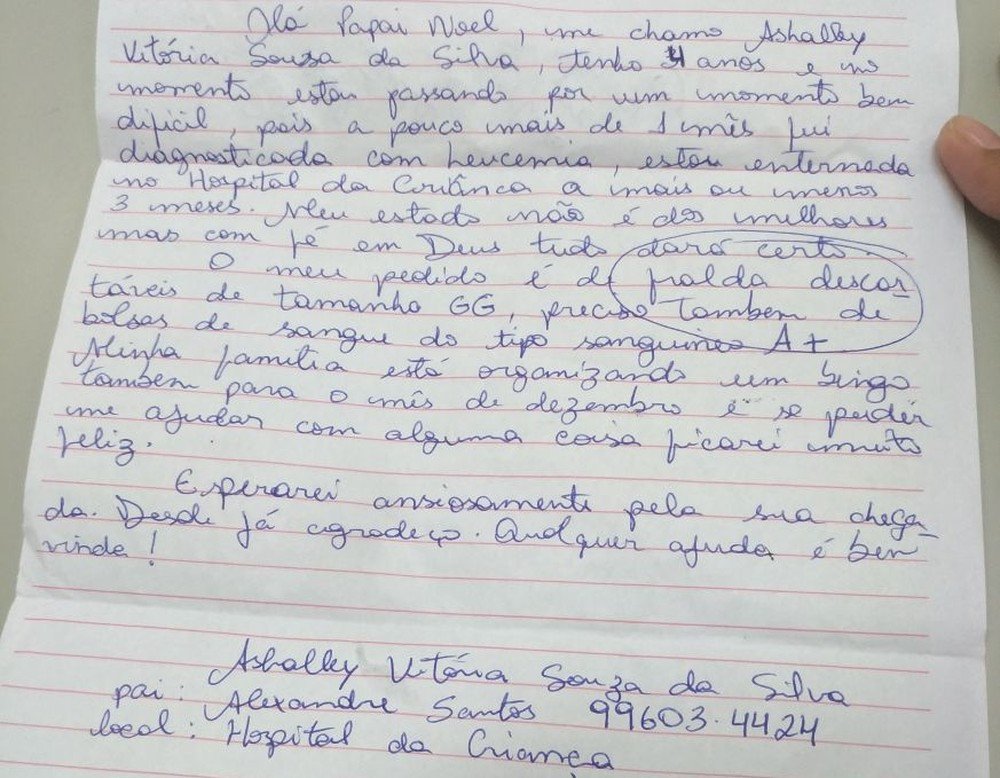 Olá Papai Noel, me chamo Ashalley
Vitória Souza da Silva, tenho 4 anos e no
momento estou passando por um momento bem
dificil, pois a pouco mais de 1 mês fui
diagnosticada com leucemia, estou enternada
no Hospital da Criânça a mais ou menos
3 meses. Meu estado não é dos melhores
mas com fé em Deus tudo dará certo.
O meu pedido é de fralda descar
táveis de tamanho GG, preciso também de
bolsas de sangue do tipo sanguineo A+
Minha família está organizando um bingo
também para o mês de dezembro e se puder
me ajudar com alguma coisa ficarei muito
feliz.
Esperarei ansiosamente pela sua chega
da. Desde já agradeço. Qualquer ajuda é bem
vinda!
Ashalley Vitória Souza da Silva
pai: Alexandre Santos 99603-4424
local: Hospital da Criança